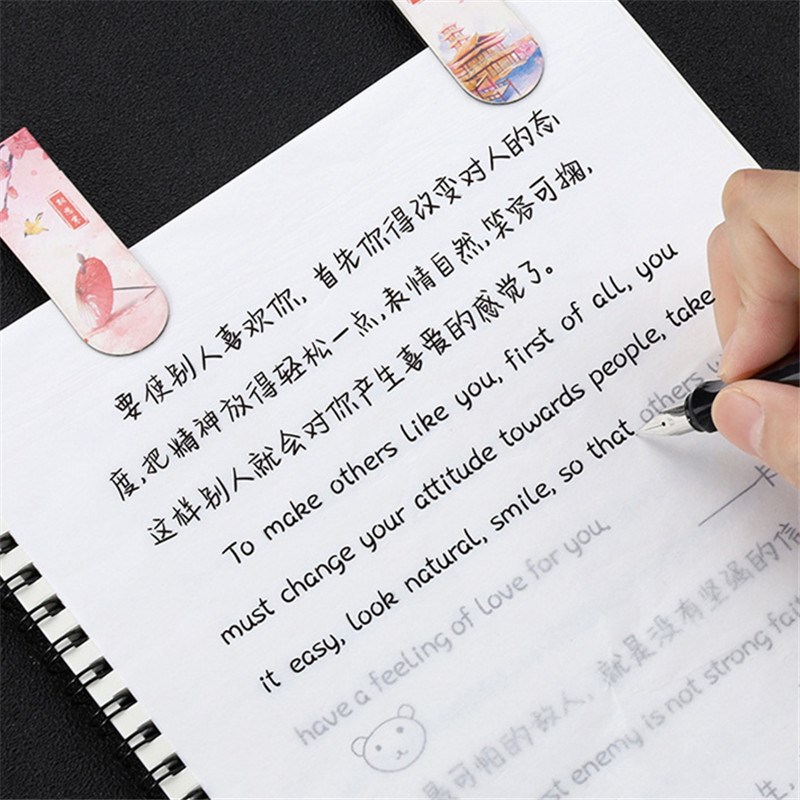 要使别人喜欢你,首先你得改变对人的态
度,把精神放得轻松一点,表情自然,笑容可掬,
这样别人就会对你产生喜爱的感觉了。
To make others like you, first of all, you
must change your attitude towards people, take
it easy, look natural, smile, so that others
have a feeling of love for you.
——卡
最可怕的敌人,就是没有坚强的信
st enemy is not strong fait